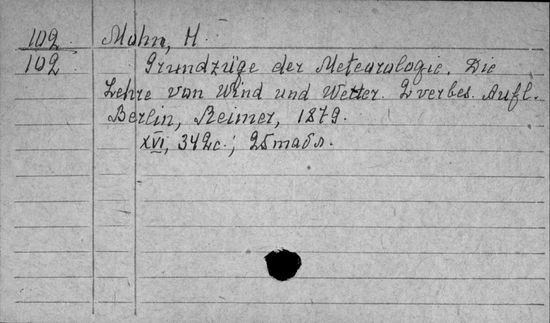 102 Mohn, H
102 Grundzüge der Meteorologie. Die
Lehre von Wind und Wetter. 2 verbes. Aufl.
Berlin, Reimer, 1879.
XVI, 342 с.; 25 табл.